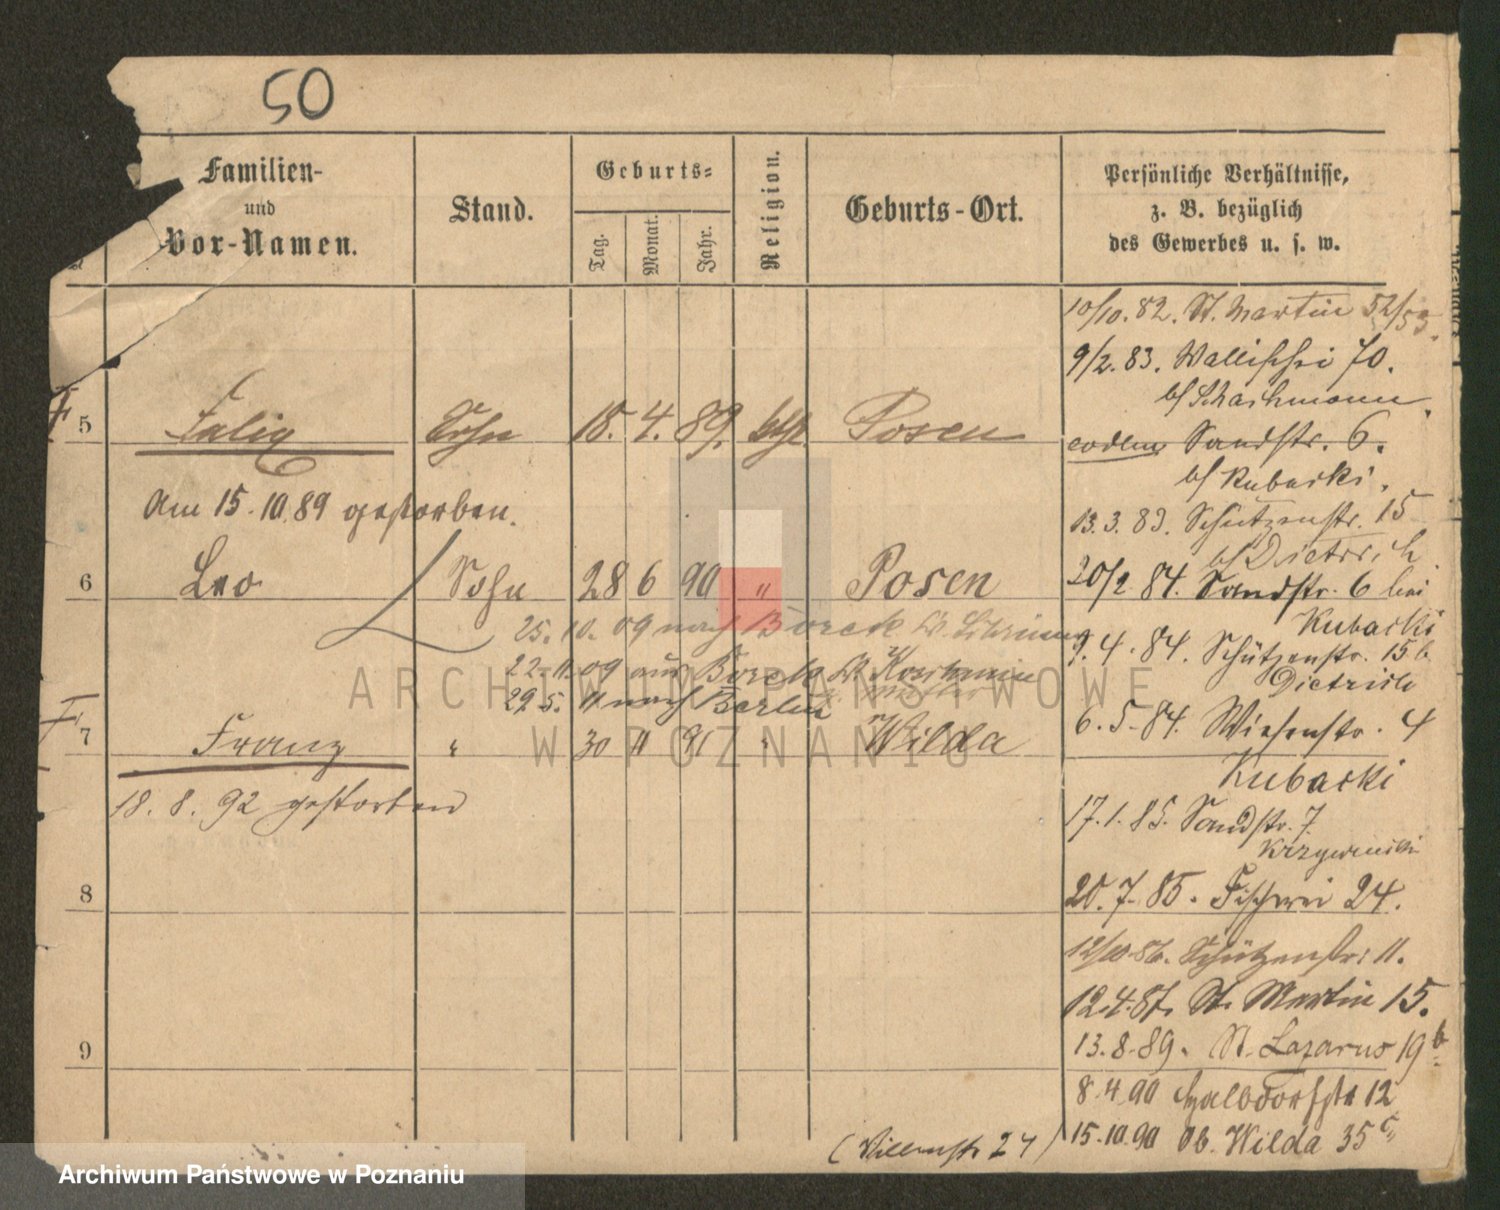 50
Familien-
und
Vor-Namen.
Stand.
Geburts-
Tag.
Monat.
Jahr.
Religion.
Geburts-Ort.
Persönliche Verhältnisse,
z. B. bezüglich
des Gewerbes u. s. w.
5 Sohn 18. 4. 89. kth Posen
Am 15.10.89 gestorben.
6 Leo Sohn 28 6 90 " Posen
25. 10. 09 nach Borek
22. 11. 09 aus Borek Koschmin
29. 5. 11 nach Berlin
7 Franz " 30 11 91 " Wilda
18. 8. 92 gestorben
8
9
10/10. 82. St. Martin 52/53.
9/2. 83. Wallischei 70.
b/
eodem Sandstr. 6.
b/ Kubacki.
13. 3. 83. Schützenstr. 15
b/ Dietrich
20/2. 84. Sandstr. 6 bei
Kubacki
9. 4. 84. Schützenstr. 15b
Dietrich
6. 5. 84. Wiesenstr. 4
Kubacki
17. 1. 85. Sandstr. 7.
20. 7. 85. Fischerei 24.
12/10 86. Schützenstr. 11.
12. 4. 87. St. Martin 15.
13. 8. 89. St. Lazarus 19b.
8. 4. 90 Halbdorfstr 12
15. 10. 90 Ob. Wilda 35c
ARCHIWUM PAŃSTWOWE
W POZNANIU
Archiwum Państwowe w Poznaniu